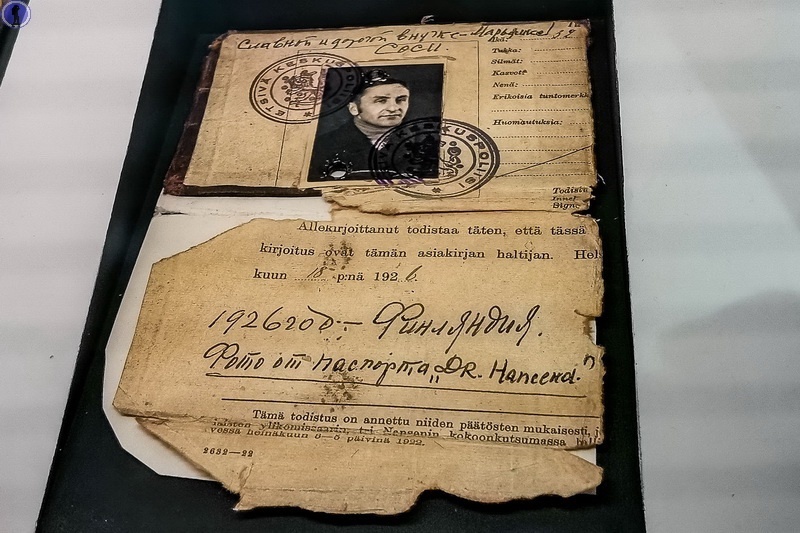 Славной и дорогой внучке –
Соси.
Ikä:
Tukka:
Silmät:
Kasvot:
Nenä:
Erikoisia tuntomerk
Huomautuksia:
ETSIVÄ KESKUSPOLIISI
KESKUSPOLIISI
Todistu
Innel
Sign
Allekirjoittanut todistaa täten, että tässä
kirjoitus ovat tämän asiakirjan haltijan. Hel
kuun 18 p:nä 1926.
1926 год – Финляндия.
Фото от паспорта „DR. Hансена."
Tämä todistus on annettu niiden päätösten mukaisesti, j
laisten ylikomissaarin, t:ri Nansenin kokoonkutsumassa hall
vessä heinäkuun 3–5 päivinä 1922.
2632—22